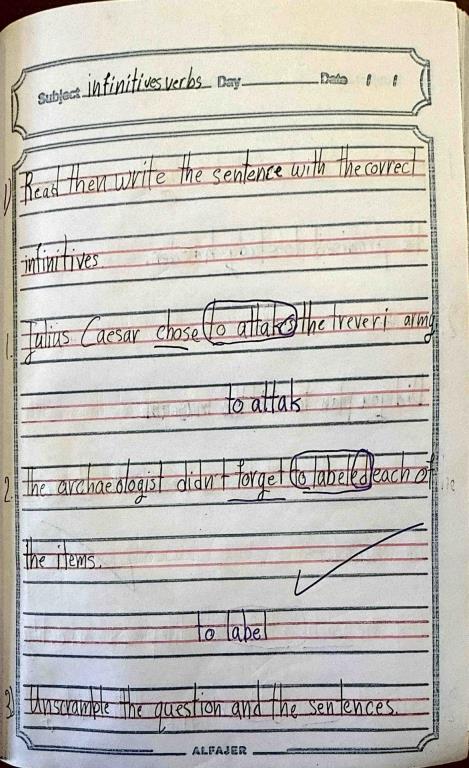 Subject infinitives verbs Day Date / /
1) Read then write the sentence with the correct
infinitives.
1. Julius Caesar chose to attaks the treveri army
to attak
2. the archaeologist didn't forget to labeled each of
the items.
to label
3) Unscramble the question and the sentences.
ALFAJER